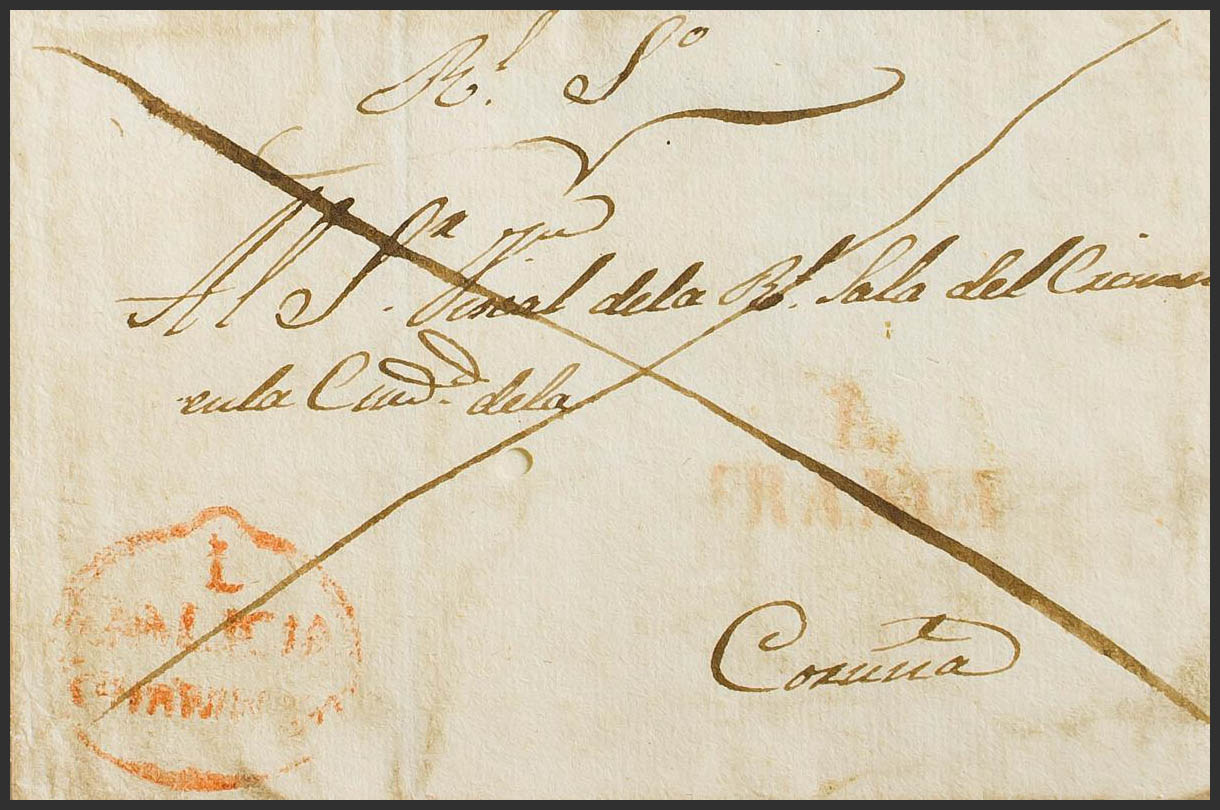 Rl. So
Al Sr. Fiscal dela Rl. Sala del Crimen
en la Ciudd. dela
L.
FRANCA
Coruña
L
GALICIA